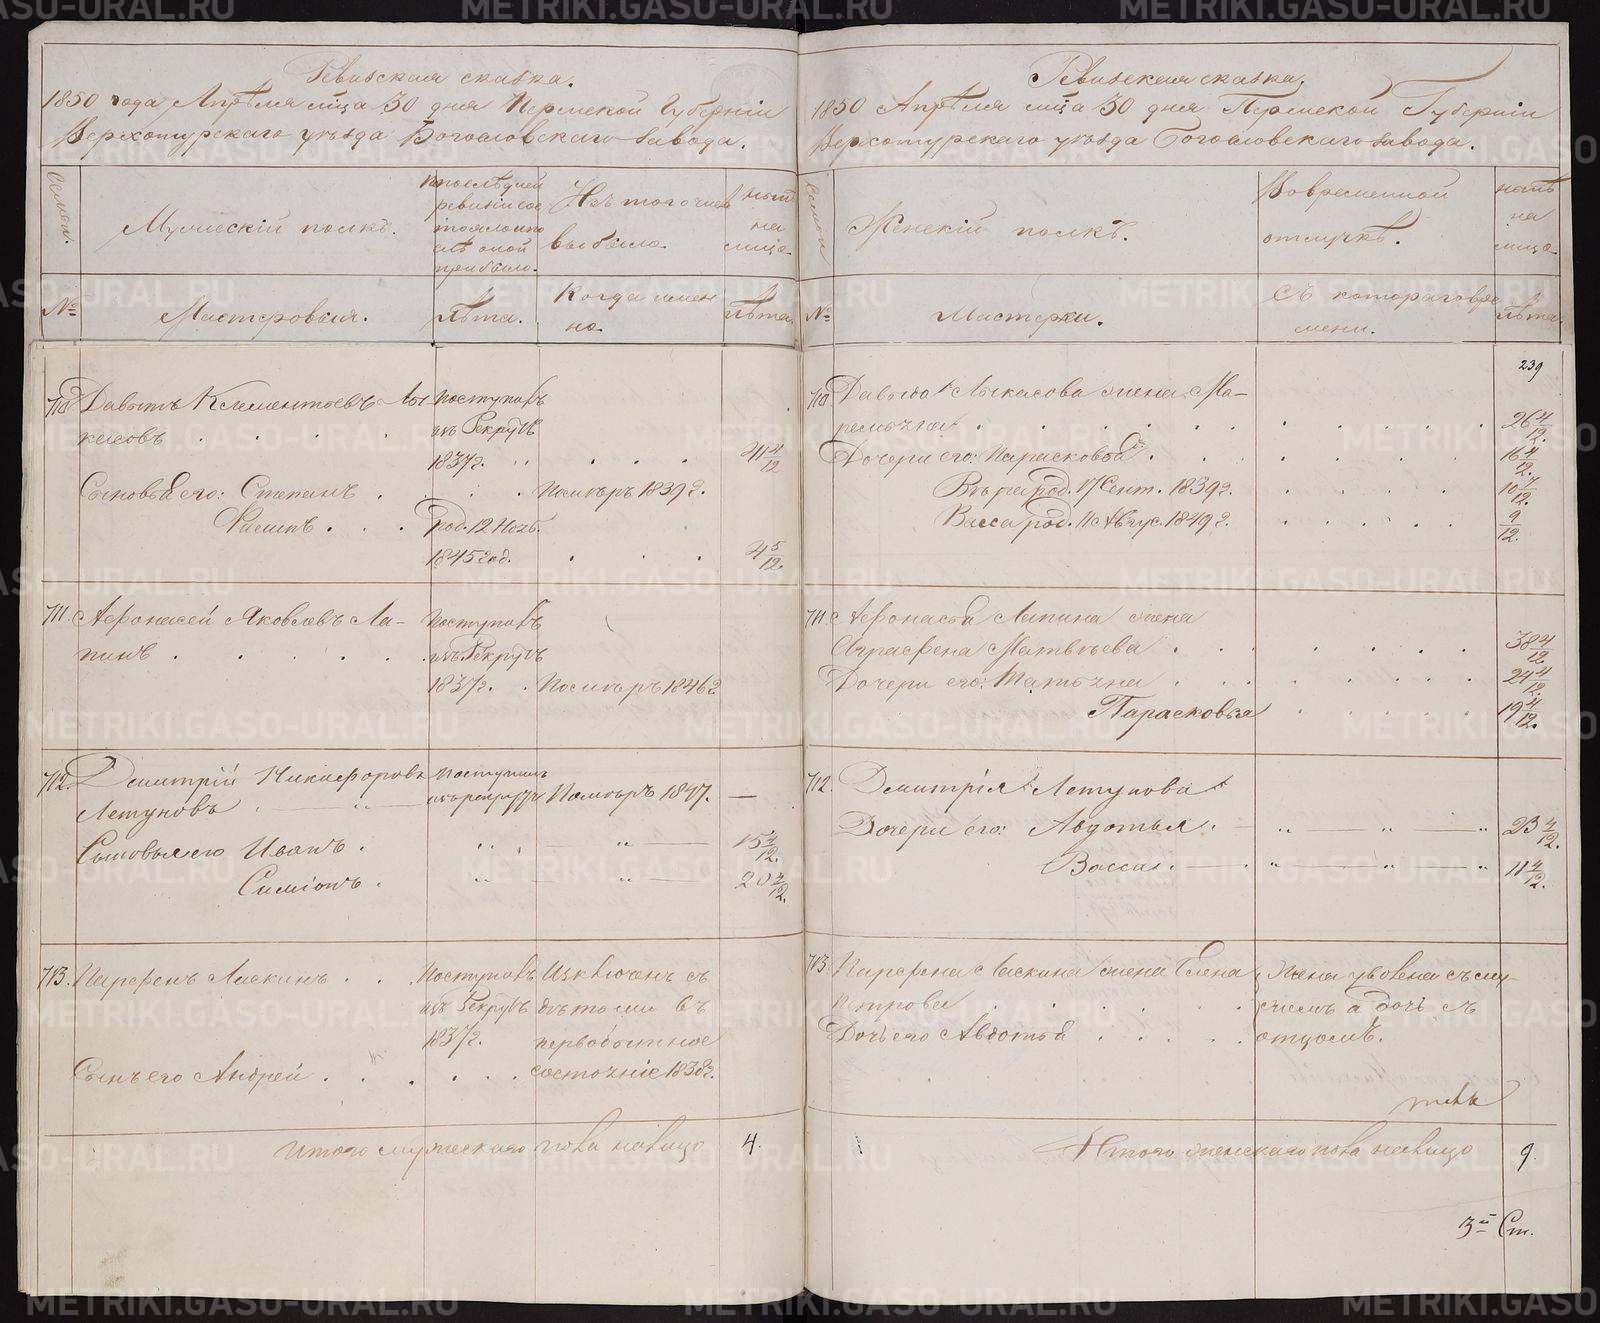 Ревизская сказка.
1850 года Апрѣля м͠ца 30 дня Пермской Губерніи
Верхотурскаго уѣзда Богословскаго завода.
Мужескій полъ.
По послѣдней
ревизіи сос
тояло и по
слѣ оной
прибыло.
Изъ того числа
выбыло.
на
лицо
№
Мастеровыя.
Лѣта.
Когда имен
но.
Лѣта.
710 Давытъ Клементьевъ Лы
касовъ
Поступилъ
въ Рекруты
1837 г.
41 4/12
Сыновья его: Степанъ . Помѣръ 1839 г.
Филипъ . . . род. 12 Нояб.
1845 год. 4 5/12.
711. Афонасей Яковлевъ Ла-
пинъ
Поступилъ
въ Рекруты
1837 г. . Помѣръ 1846 г
712. Дмитрій Никифоровъ
Летуновъ
Поступилъ
въ рекруты Помѣръ 1847. —
Сыновья его Иванъ . 15 4/12.
Симіонъ . 20 4/12.
713. Парфенъ Ласкинъ . . Поступилъ Изключенъ съ
въ Рекруты дѣтьми въ
1837 г. первобытное
Сынъ его Андрей . . . . . состояніе 1838 г.
Итого мужескаго пола налицо 4.
Ревизская сказка.
1850 Апрѣля м͠ца 30 дня Пермской Губерніи
Верхотурскаго уѣзда Богословскаго завода.
Женскій полъ.
Во временной
отлучкѣ.
на
лицо
№
Мастерки.
Съ котораго вре
мени.
Лѣта.
239
710 Давыда Лыкасова жена Ма-
ремьяна . 26 4/12.
Дочери его: Парасковья . 16 4/12.
род. 17 Сент. 1839 г. 10 7/12.
Васса род. 11 Авгус. 1849 г. 9/12.
711. Афонасья Лапина жена
Аграфена Матвѣева . 38 4/12
Дочери его: Татьяна . 24 4/12.
Парасковья 19 4/12.
712. Дмитрія Летунова
Дочери его: Авдотья . — „ — „ — „ 23 4/12.
Васса . . „ — „ — „ 11 4/12.
713 Парфена Ласкина жена Елена Жена уволена съ му
Петрова жемъ а дочь съ
Дочь его Авдотья . . . . . отцомъ.
Итого женскаго пола налицо 9.
3й Ст.